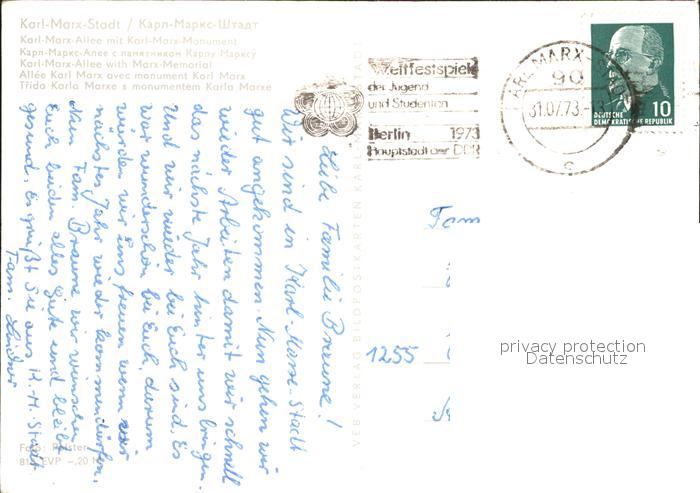 Karl-Marx-Stadt / Карл-Маркс-Штадт
Karl-Marx-Allee mit Karl-Marx-Monument
Карл-Маркс-Алее с памятником Карлу Марксу
Karl-Marx-Allee with Marx-Memorial
Allée Karl Marx avec monument Karl Marx
Třída Karla Marxe s monumentem Karla Marxe
Weltfestspiele
der Jugend
und Studenten
Berlin 1973
Hauptstadt der DDR
KARL-MARX-STADT
90
31.07.73.-13
c
10
DEUTSCHE
DEMOKRATISCHE REPUBLIK
Liebe Familie Braune!
Wir sind in Karl-Marx-Stadt
gut angekommen. Nun gehen wir
wieder Arbeiten damit wir schnell
das nächste Jahr hinter uns bringen.
Und wir wieder bei Euch sind. Es
war wunderschön bei Euch, darum
würden wir uns freuen wenn wir
nächstes Jahr wieder kommen dürfen.
Fam. Braune wir wünschen
Euch beiden alles Gute und bleibt
gesund. Es grüßt Sie aus K.-M.-Stadt
Fam.
VEB VERLAG BILDPOSTKARTEN KARL-MARX-STADT
Fam
1255
privacy protection
Datenschutz
Foto:
EVP -,20 M